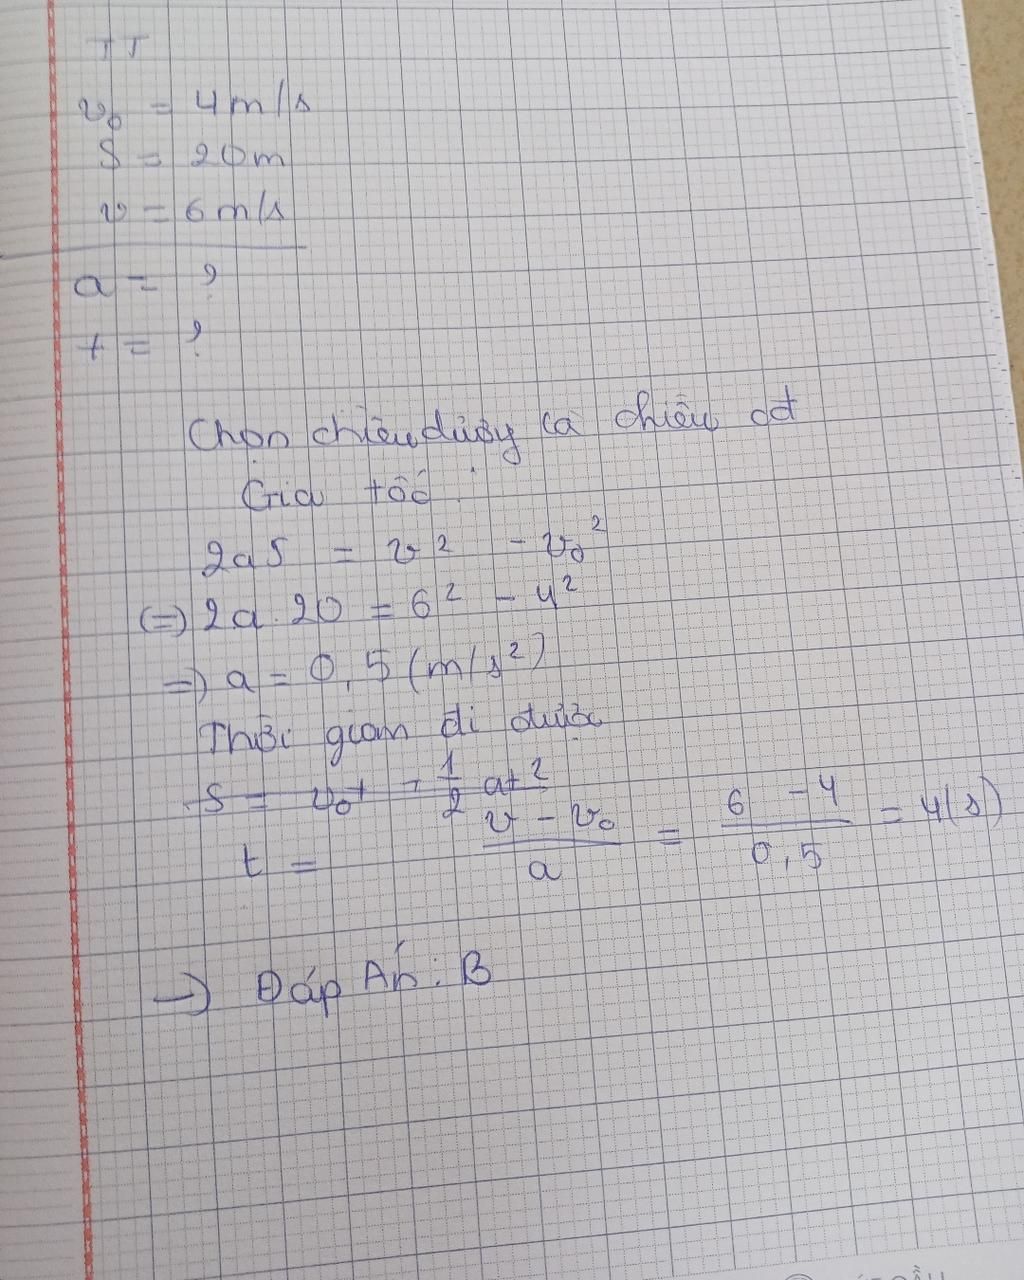 TT
v₀ = 4m/s
S = 20m
v = 6m/s
a = ?
t = ?
Chọn chiều dương là chiều cđ
Gia tốc :
2aS = v² - v₀²
(=) 2a.20 = 6² - 4²
=) a = 0,5 (m/s²)
Thời gian đi được
S = v₀t + 1/2 at²
t = (v - v₀)/a = (6 - 4)/0,5 = 4(s)
→ Đáp Án: B